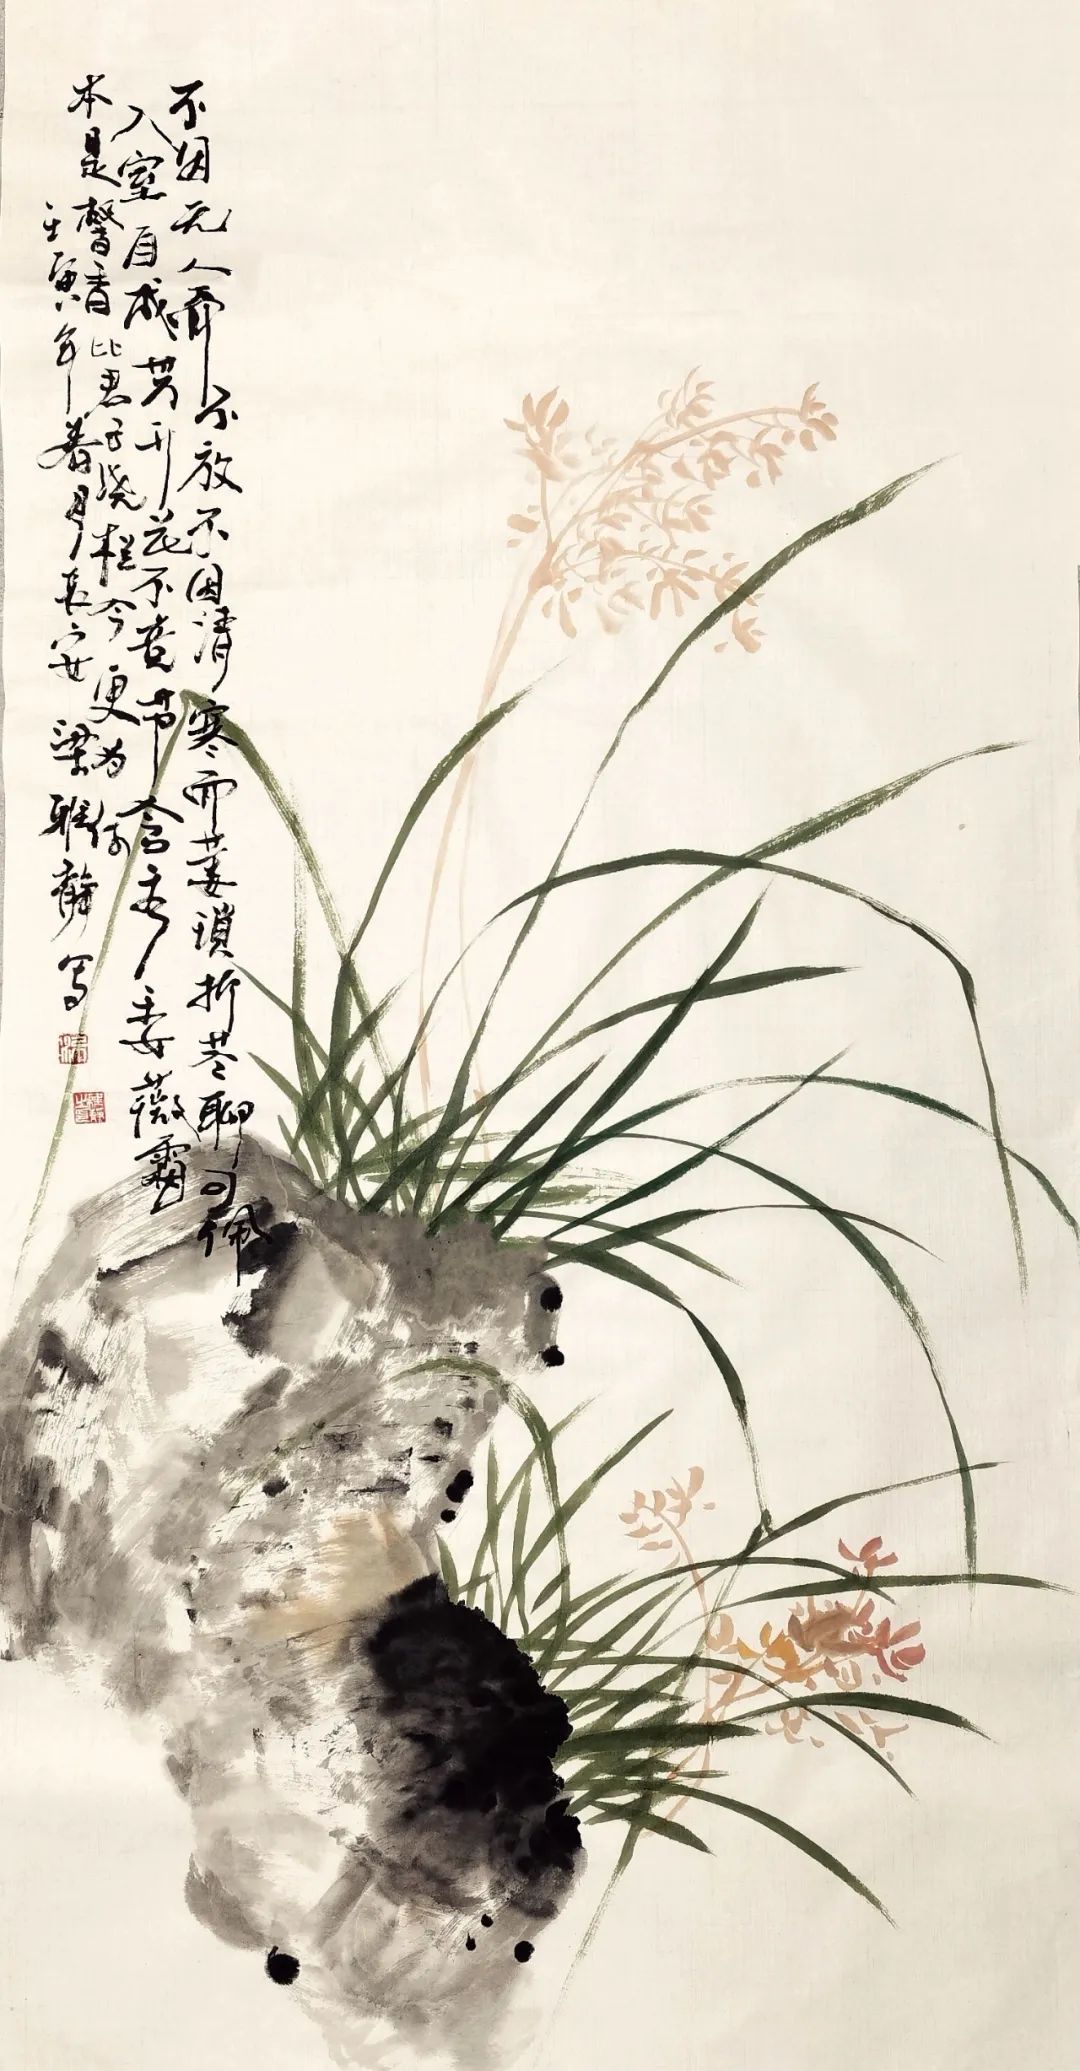 不因无人而不放不因清寒而萎琐折茎聊可佩
入室自成芳开花不竞节含秀委薇霜
本是馨香比君子绕栏今更为何
壬寅年春月长安梁雅静写